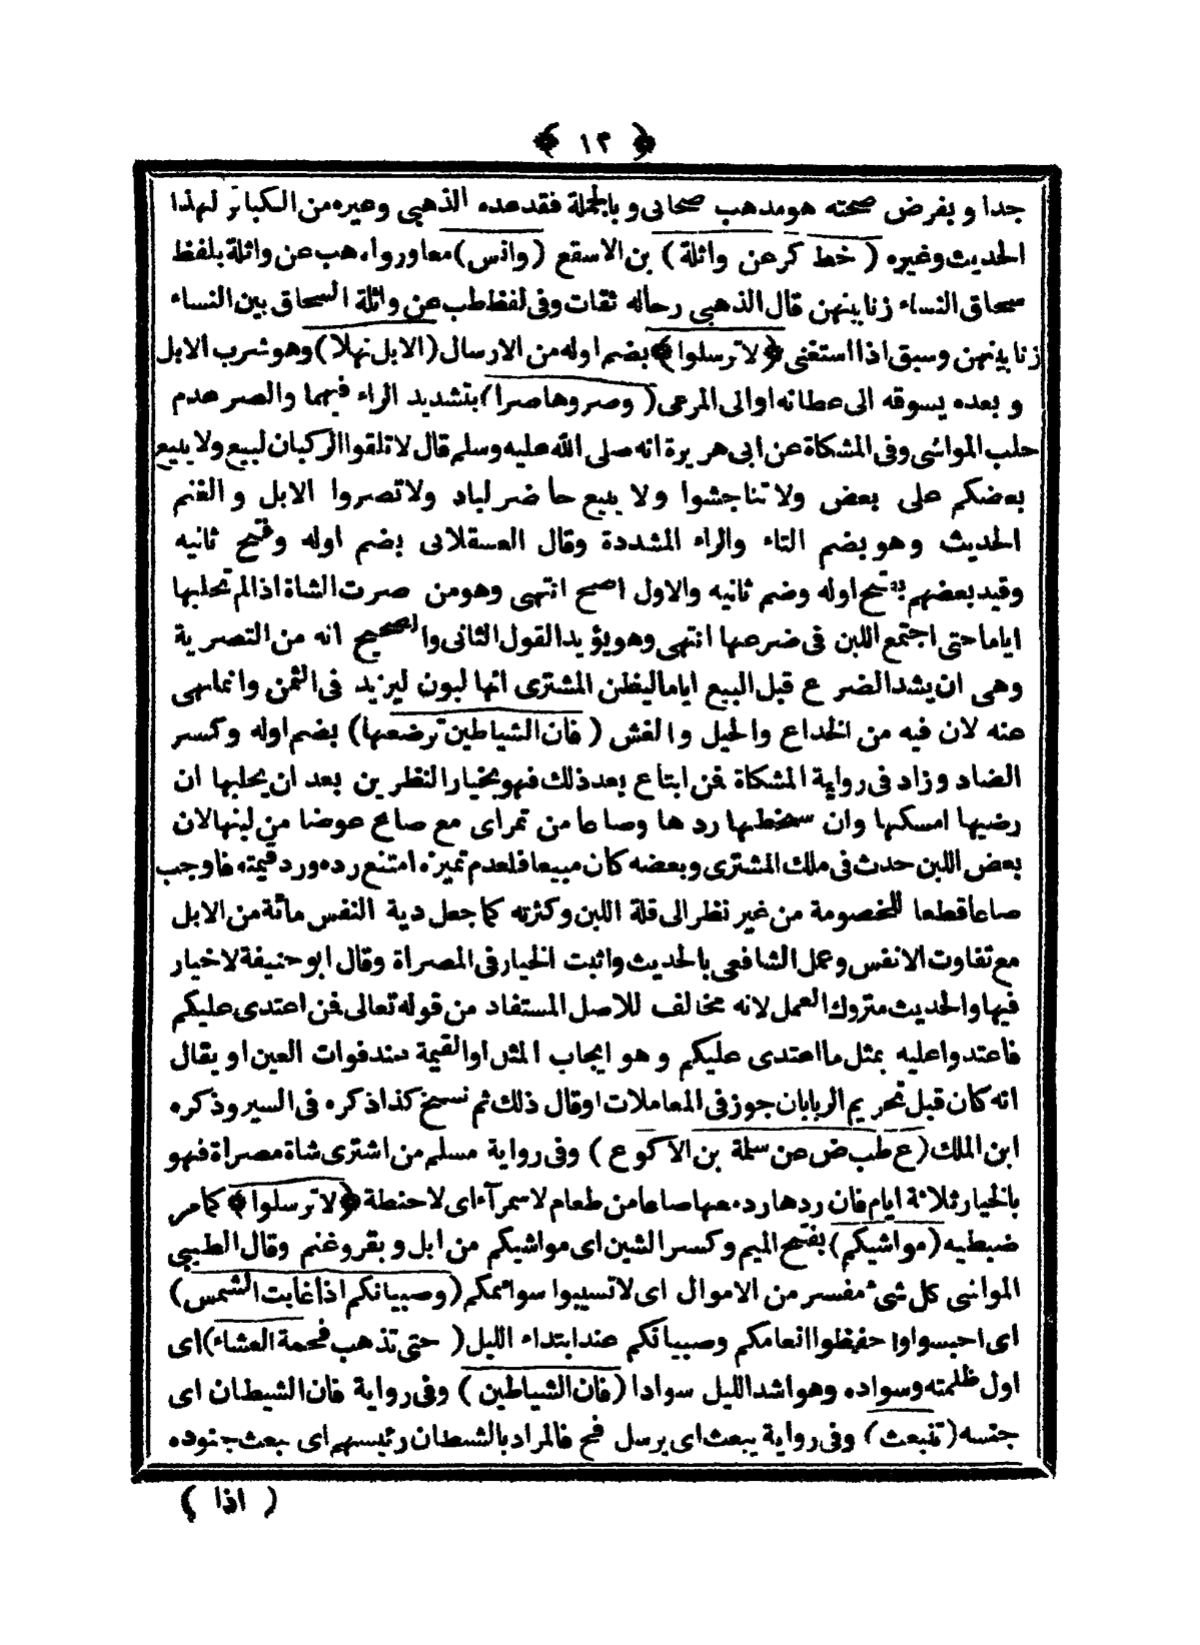 ﴿ ١٣ ﴾
جدا و بفرض صحته هو مذهب صحابى و بالجملة فقد عده الذهبى وغيره من الكبائر لهذا
الحديث وغيره ( خط كر عن واثلة ) بن الاسقع ( وانس ) معا ورواه هب عن واثلة بلفظ
سحاق النساء زنا بينهن قال الذهبى رجاله ثقات وفى لفظ طب عن واثلة السحاق بين النساء
زنا بينهن وسبق اذا استغنى ﴿ لا ترسلوا ﴾ بضم اوله من الارسال ( الابل نهلا ) وهو شرب الابل
و بعده يسوقه الى عطانه او الى المرعى ( وصروها صرا ) بتشديد الراء فيهما والصر عدم
حلب المواشى وفى المشكاة عن ابى هريرة انه صلى الله عليه وسلم قال لا تلقوا الركبان لبيع ولا يبيع
بعضكم على بعض ولا تناجشوا ولا يبيع حاضر لباد ولا تصروا الابل و الغنم
الحديث وهو بضم التاء والراء المشددة وقال العسقلانى بضم اوله وفتح ثانيه
وقيد بعضهم بفتح اوله وضم ثانيه والاول اصح انتهى وهو من صرت الشاة اذا لم تحلبها
اياما حتى اجتمع اللبن فى ضرعها انتهى وهو يؤيد القول الثانى والصحيح انه من التصرية
وهى ان يشد الضرع قبل البيع اياما ليظن المشترى انها لبون ليزيد فى الثمن وانما نهى
عنه لان فيه من الخداع والحيل والغش ( فان الشياطين ترضعها ) بضم اوله وكسر
الضاد وزاد فى رواية المشكاة فمن ابتاع بعد ذلك فهو بخيار النظرين بعد ان يحلبها ان
رضيها امسكها وان سخطها ردها وصاعا من تمر اى مع صاع عوضا من لبنها لان
بعض اللبن حدث فى ملك المشترى وبعضه كان مبيعا فلعدم تميزه امتنع رده ورد قيمته فاوجب
صاعا قطعا للخصومة من غير نظر الى قلة اللبن وكثرته كما جعل دية النفس مائة من الابل
مع تفاوت الانفس وعمل الشافعى بالحديث واثبت الخيار فى المصراة وقال ابو حنيفة لا خيار
فيها والحديث متروك العمل لانه مخالف للاصل المستفاد من قوله تعالى فمن اعتدى عليكم
فاعتدوا عليه بمثل ما اعتدى عليكم وهو ايجاب المثل او القيمة عند فوات العين او يقال
انه كان قبل تحريم الربا بان جوز فى المعاملات او قال ذلك ثم نسخ كذا ذكره فى السير وذكره
ابن الملك ( ع طب ض عن سلمة بن الاكوع ) وفى رواية مسلم من اشترى شاة مصراة فهو
بالخيار ثلاثة ايام فان ردها رد معها صاعا من طعام لا سمرآء اى لا حنطة ﴿ لا ترسلوا ﴾ كما مر
ضبطيه ( مواشيكم ) بفتح الميم وكسر الشين اى مواشيكم من ابل و بقر وغنم وقال الطيبى
المواشى كل شئ مفسر من الاموال اى لا تسيبوا سوائمكم ( وصبيانكم اذا غابت الشمس )
اى احبسوا وا حفظوا انعامكم وصبيانكم عند ابتداء الليل ( حتى تذهب فحمة العشاء ) اى
اول ظلمته وسواده وهو اشد الليل سوادا ( فان الشياطين ) وفى رواية فان الشيطان اى
جنسه ( تنبعث ) وفى رواية يبعث اى يرسل فح فالمراد بالشيطان رئيسهم اى يبعث جنوده
( اذا )